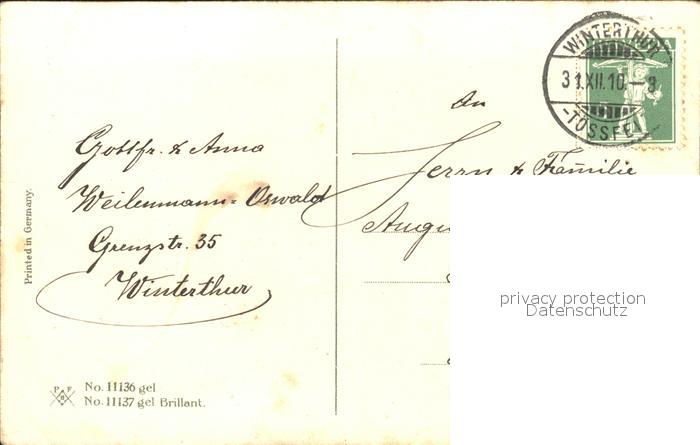 Gottfr. & Anna
Weilenmann-Oswald
Grenzstr. 35
Winterthur
Printed in Germany.
P F B
No. 11136 gel
No. 11137 gel Brillant.
WINTERTHUR
31.XII.10.-8.
-TÖSSFELD
An
Herrn & Familie
privacy protection
Datenschutz